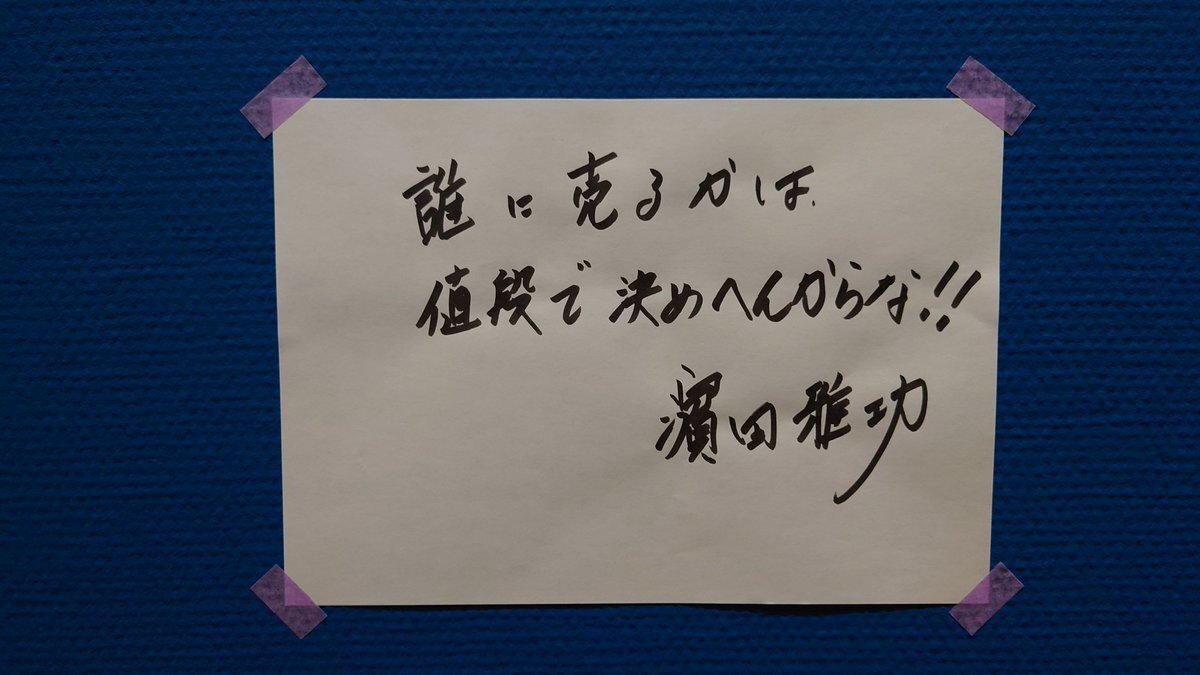 誰に売るかは
値段で決めへんからな!!
濱田雅功